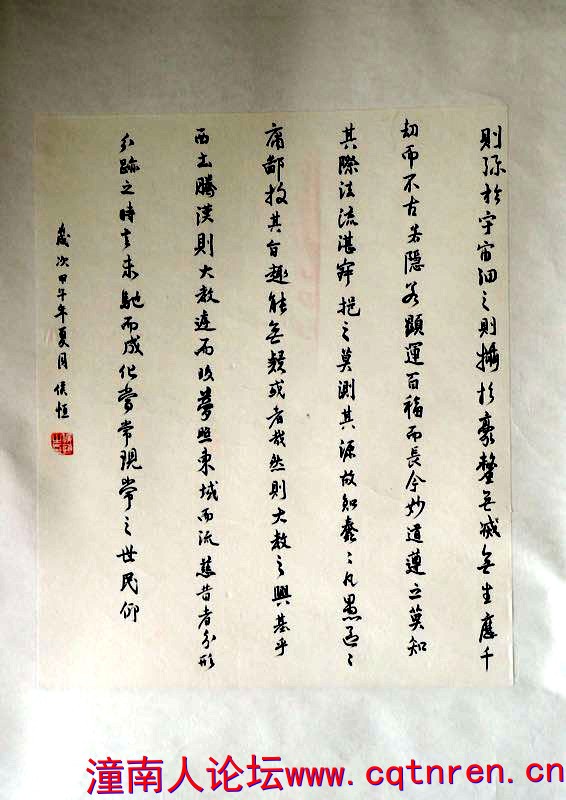 則弥於宇宙細之則攝於豪釐無滅無生歷千
劫而不古若隱若顯運百福而長今妙道遵之莫知
其際法流湛寂挹之莫測其源故知蠢々凡愚區々
庸鄙投其旨趣能無疑或者哉然則大教之興基乎
西土騰漢則大教而皎夢照東域而流慈昔者分形
分跡之時言未馳而成化當常現常之世民仰
歲次甲午年夏月侯恒
潼南人论坛www.cqtnren.cn